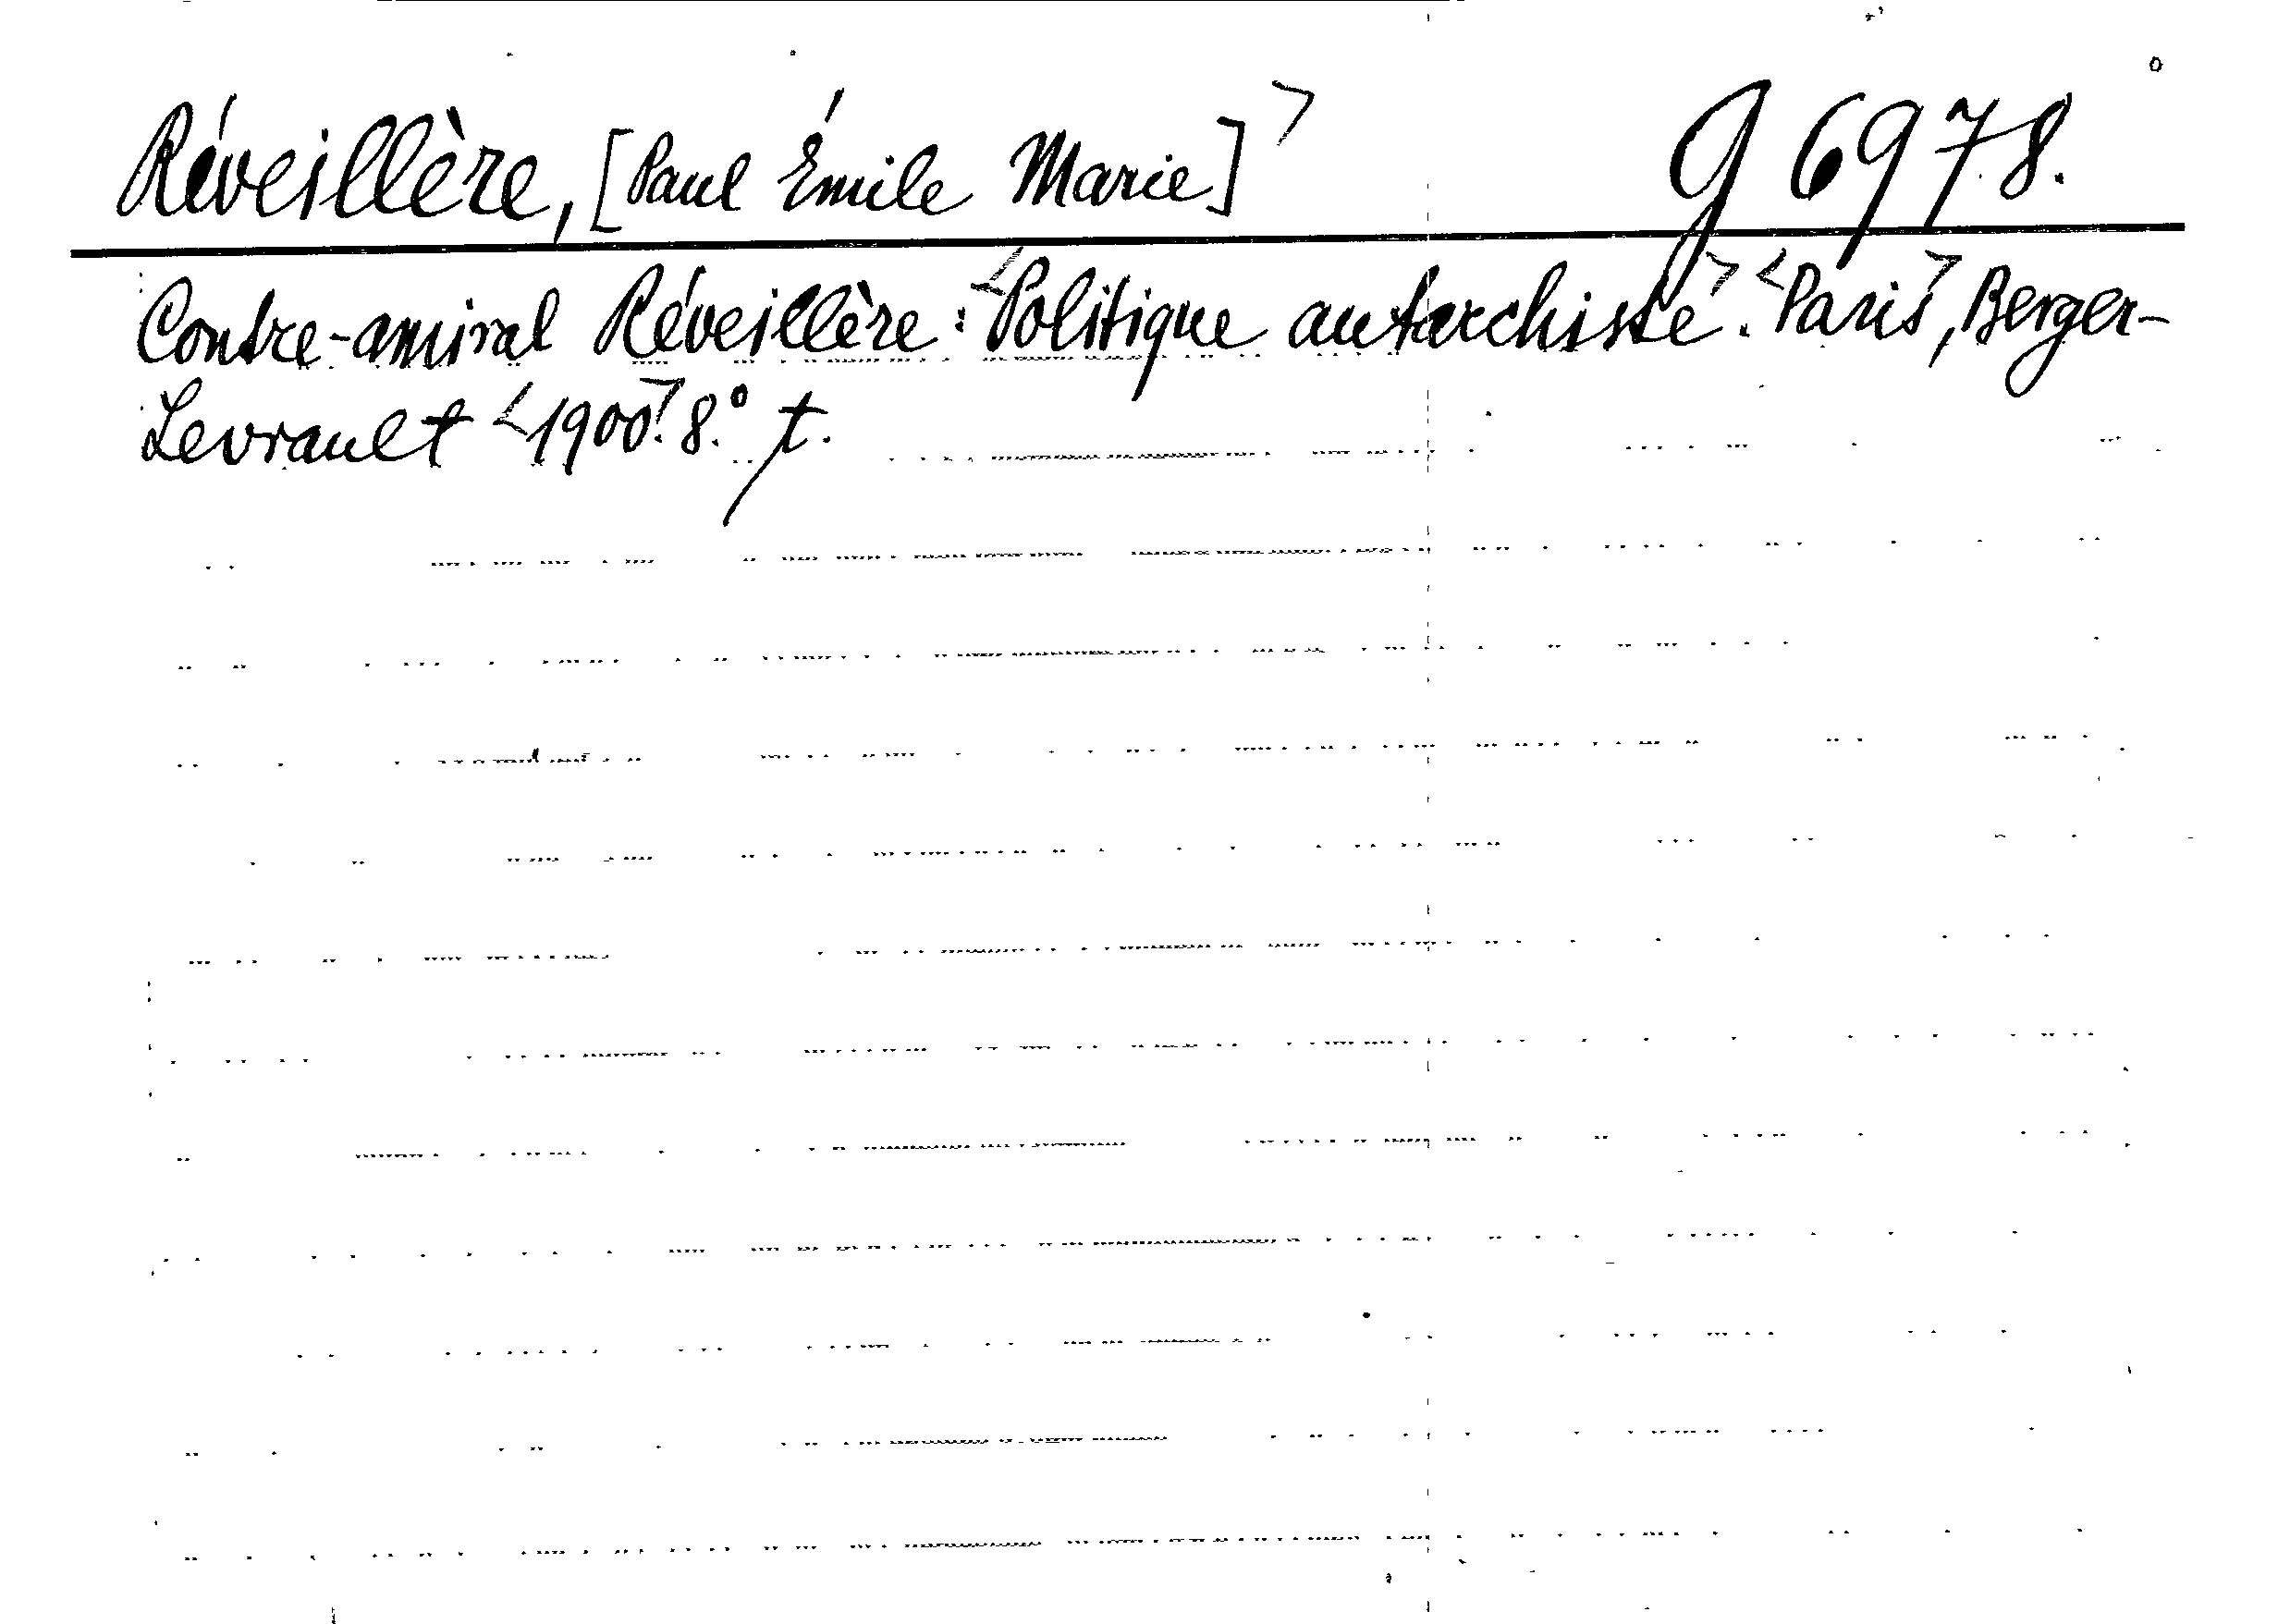 Réveillère, [Paul Émile Marie]> g 6978.
Contre-amiral Réveillère: <Politique autarchiste>. <Paris>, Berger-
Levrault <1900>. 8.° t.